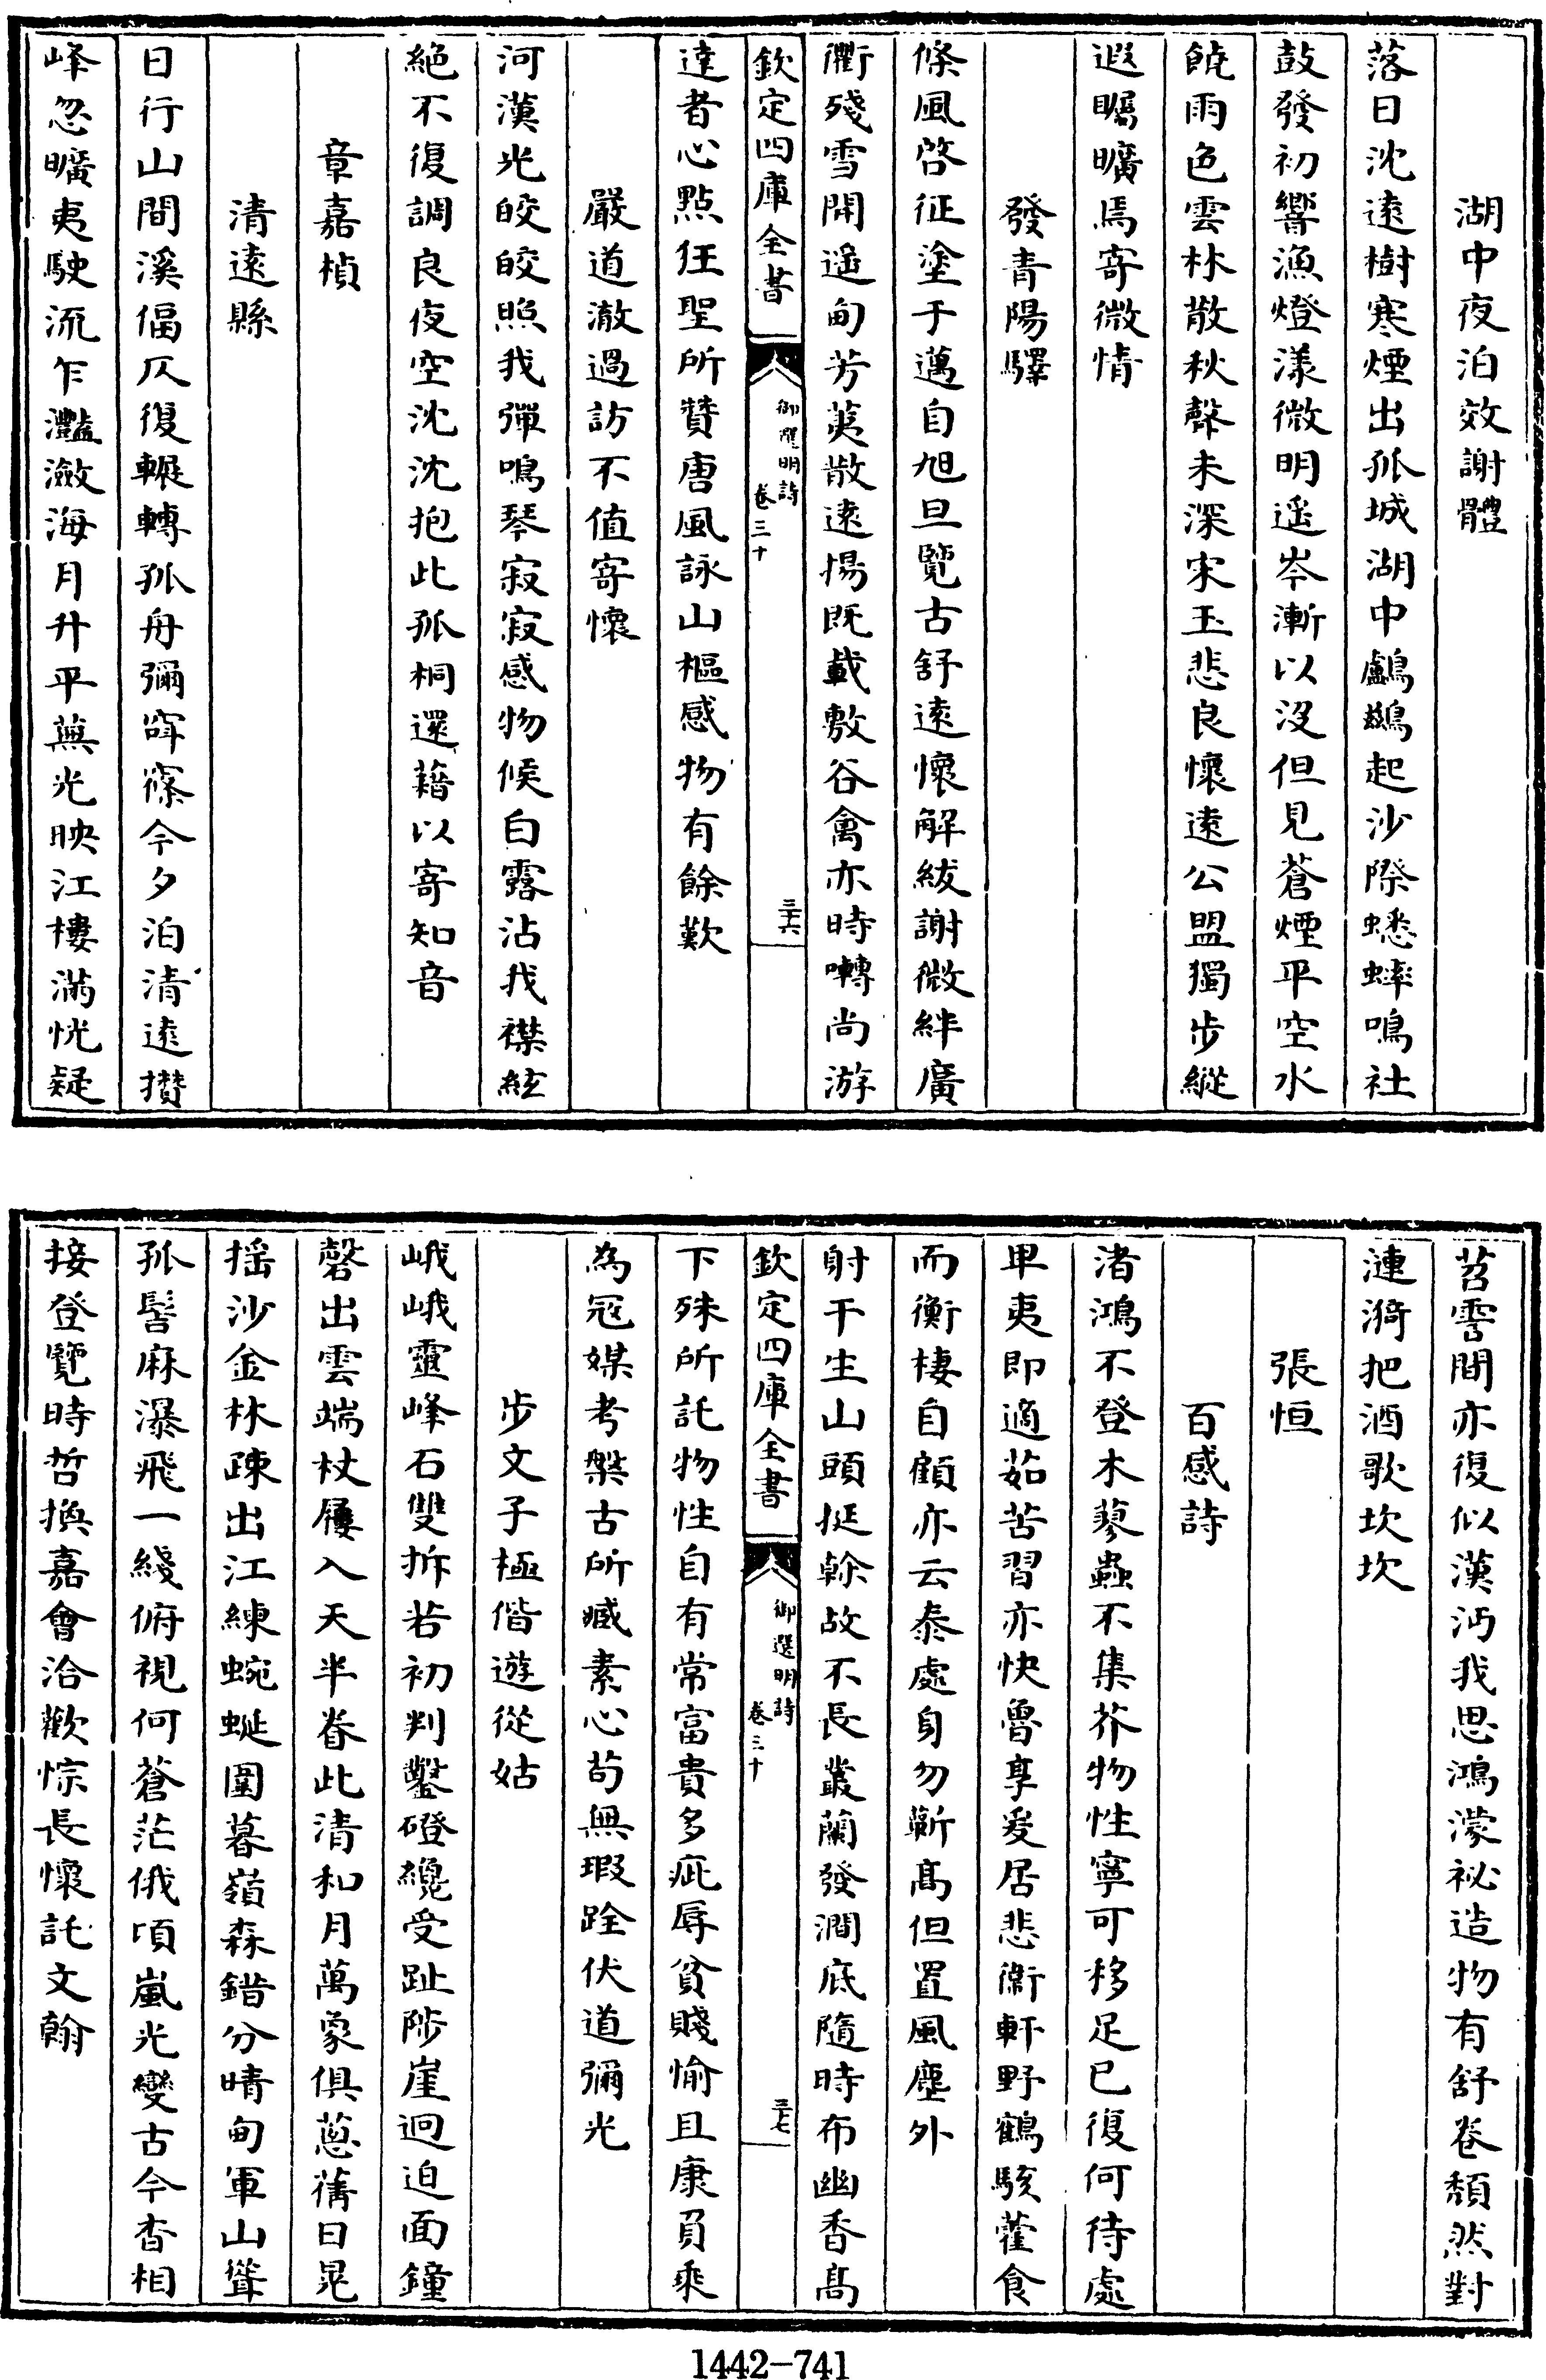 湖中夜泊效謝體
落日沈遠樹寒煙出孤城湖中鸕鷀起沙際蟋蟀鳴社
鼓發初響漁燈漾微明遥岑漸以沒但見蒼煙平空水
饒雨色雲林散秋聲未深宋玉悲良懷遠公盟獨步縱
遐矚曠焉寄微情
發青陽驛
條風啓征塗于邁自旭旦覽古舒遠懷解紱謝微絆廣
衢殘雪開遥甸芳荑散遠揚既載敷谷禽亦時囀尚游
欽定四庫全書
御選明詩
卷三十
三十六
達者心點狂聖所贊唐風詠山樞感物有餘歎
嚴道澈過訪不值寄懷
河漢光皎皎照我彈鳴琴寂寂感物候白露沾我襟絃
絶不復調良夜空沈沈抱此孤桐還藉以寄知音
章嘉楨
清遠縣
日行山間溪偪仄復輾轉孤舟彌窅窱今夕泊清遠攢
峰忽曠夷駛流乍灔瀲海月升平蕪光映江樓滿恍疑
苕霅間亦復似漢沔我思鴻濛祕造物有舒卷頽然對
漣漪把酒歌坎坎
張恒
百感詩
渚鴻不登木蓼蟲不集芥物性寧可移足已復何待處
卑夷即適茹苦習亦快魯享爰居悲衞軒野鶴駭藿食
而衡棲自顧亦云泰處身勿蘄髙但置風塵外
射干生山頭挺榦故不長叢蘭發澗底隨時布幽香髙
欽定四庫全書
御選明詩
卷三十
三十七
下殊所託物性自有常富貴多疵辱貧賤愉且康負乘
為冦媒考槃古所臧素心苟無瑕跧伏道彌光
步文子極偕遊從姑
峨峨靈峰石雙拆若初判鑿磴纔受趾陟崖迥迫面鐘
磬出雲端杖屨入天半眷此清和月萬象俱蔥蒨日晃
揺沙金林踈出江練蜿蜒圍暮嶺森錯分晴甸軍山聳
孤髻麻瀑飛一綫俯視何蒼茫俄頃嵐光變古今杳相
接登覽時哲換嘉會洽歡悰長懷託文翰
1442-741